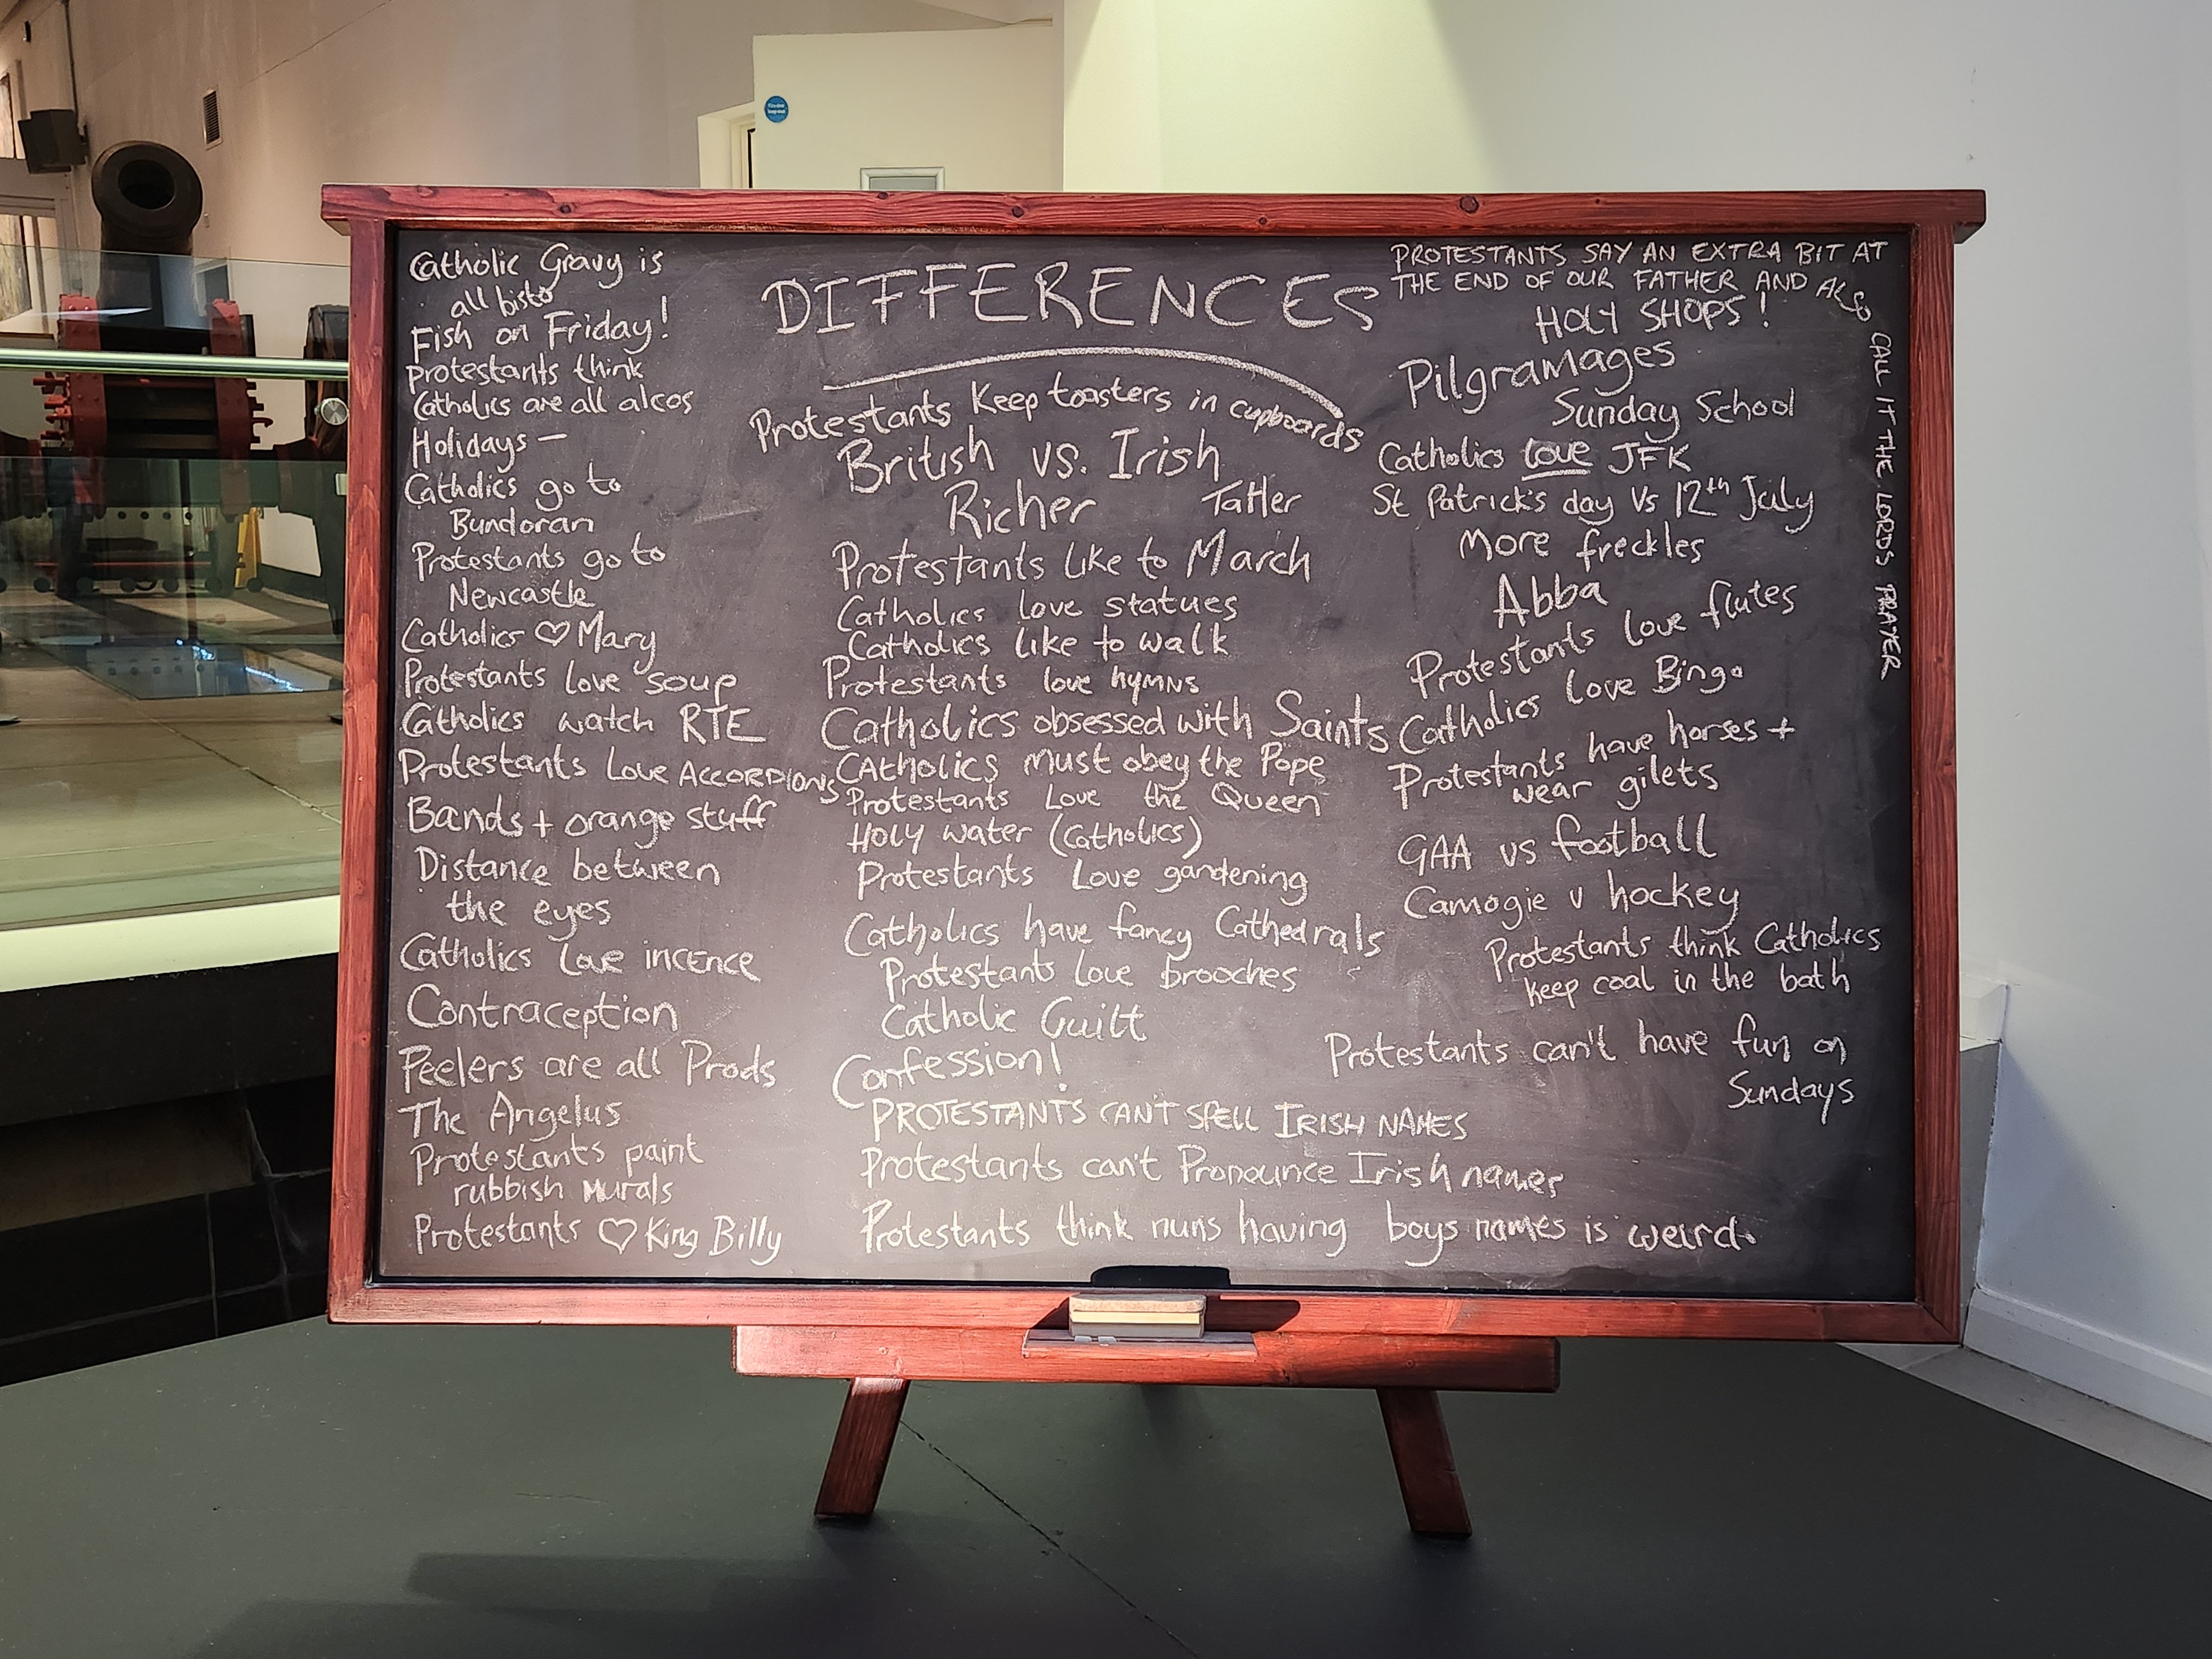 DIFFERENCES
Catholic Gravy is
all bisto
Fish on Friday!
Protestants think
Catholics are all alcos
Holidays –
Catholics go to
Bundoran
Protestants go to
Newcastle
Catholics ♡ Mary
Protestants love soup
Catholics watch RTE
Protestants Love ACCORDIONS
Bands + orange stuff
Distance between
the eyes
Catholics Love incence
Contraception
Peelers are all Prods
The Angelus
Protestants paint
rubbish Murals
Protestants ♡ King Billy
Protestants Keep toasters in cupboards
British vs. Irish
Richer Taller
Protestants like to March
Catholics love statues
Catholics like to walk
Protestants love hymns
Catholics obsessed with Saints
CAtholics Must obey the Pope
Protestants Love the Queen
HOLY water (Catholics)
Protestants Love gardening
Catholics have fancy Cathedrals
Protestants love brooches
Catholic Guilt
Confession!
PROTESTANTS CAN'T SPELL IRISH NAMES
Protestants can't Pronounce Irish names
Protestants think nuns having boys names is weird.
PROTESTANTS SAY AN EXTRA BIT AT
THE END OF OUR FATHER AND ALSO
CALL IT THE LORDS PRAYER
HOLY SHOPS!
Pilgramages
Sunday School
Catholics love JFK
St Patrick's day Vs 12th July
More freckles
Abba
Protestants love flutes
Catholics love Bingo
Protestants have horses +
wear gilets
GAA vs football
Camogie v hockey
Protestants think Catholics
keep coal in the bath
Protestants can't have fun on
Sundays